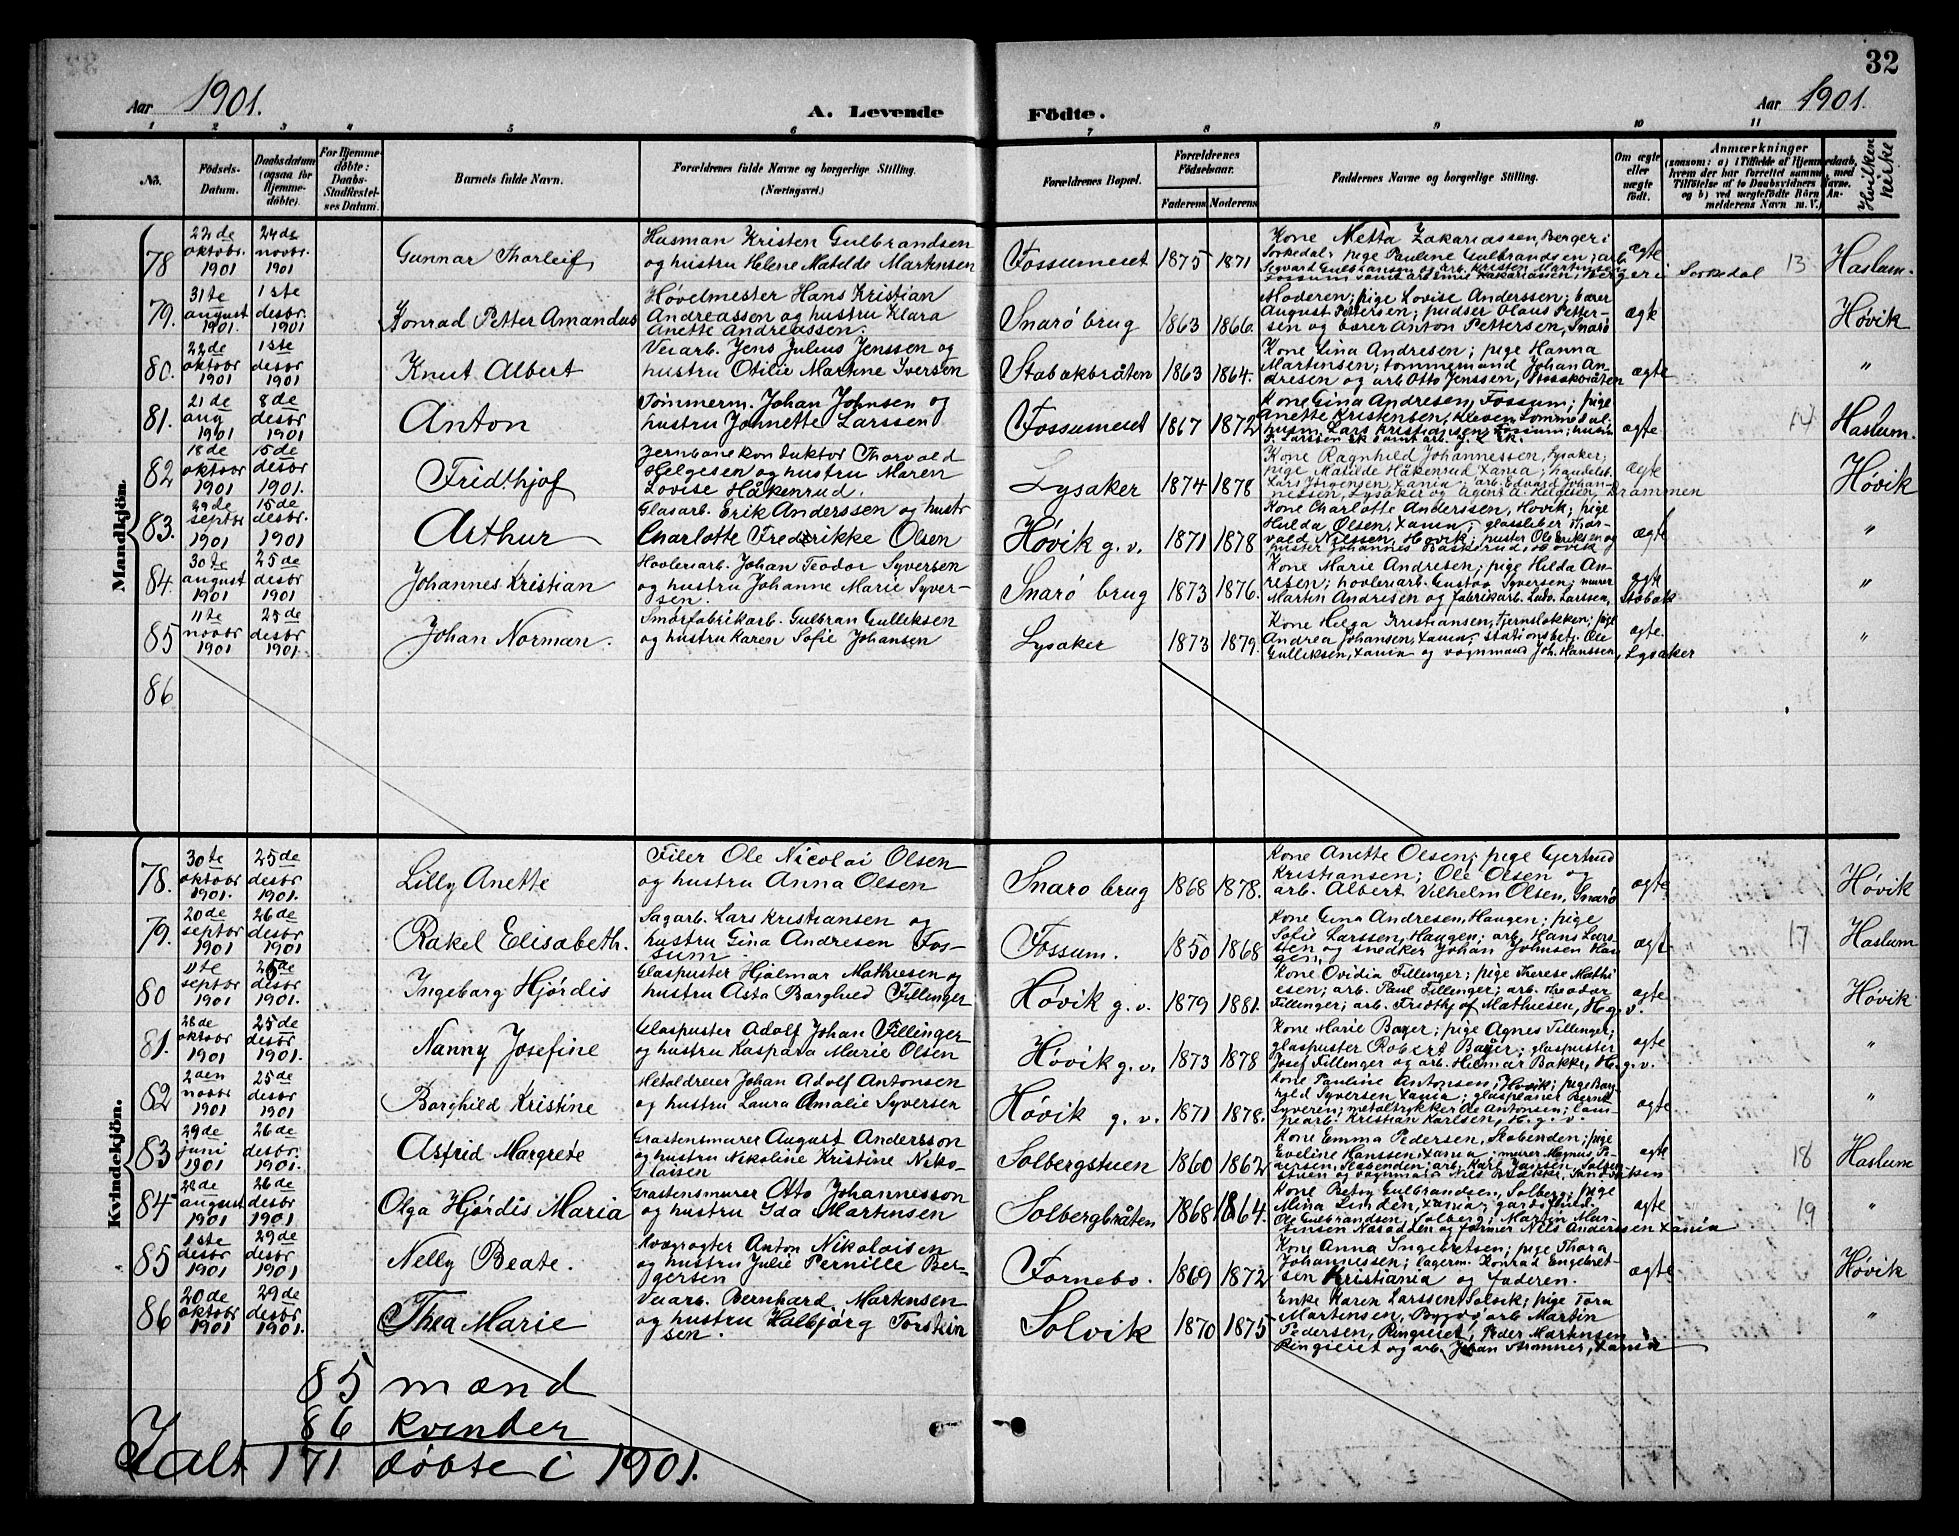 32
Aar 1901.
A. Levende Fødte.
Aar 1901.
1 2 3 4 5 6 7 8 9 10 11
No.
Fødsels-Datum.
Daabsdatum (ogsaa for Hjemmedøbte).
For Hjemmedøbte: Daabs-Stadfæstelses Datum.
Barnets fulde Navn.
Forældrenes fulde Navne og borgerlige Stilling. (Næringsvei.)
Forældrenes Bopæl.
Forældrenes Fødselsaar.
Faderens. Moderens
Faddernes Navne og borgerlige Stilling.
Om ægte eller uægte født.
Anmærkninger
(saasom: a) i Tilfælde af Hjemmedaab, hvem der har forrettet samme, med Tilføielse af to Daabsvidners Navne. og b) ved uægtefødte Børn Anmelderens Navn m. V.)
Hvilken kirke
Mandkjön.
78 22de oktobr. 1901 24de novbr. 1901 Gunnar Thorleif
Husman Kristen Gulbrandsen
og hustru Helene Matelde Martinsen
Fossumeiet 1875 1871
Kone Netta Zakariassen, Berger i
Sørkedal; pige Pauline Gulbrandsen; arb.
ægte Sørkedal 13 Haslum.
79. 31te august 1901. 1ste desbr. 1901 Konrad Petter Amandus
Høvelmester Hans Kristian
Andreassen og hustru Klara
Anette Andreassen.
Snarö brug 1863 1866.
Moderen; pige Lovise Anderssen; bærer
August Pettersen; pudser Olaus Petter-
sen og bærer Anton Pettersen, Snarö
ægte Høvik
80. 22de oktobr 1901 1ste desbr 1901 Knut Albert
Veiarb. Jens Julius Jenssen og
hustru Otilie Martine Iversen
Stabækbråten 1863 1864.
Kone Lina Andresen; pige Hanna
Martinsen; tømmermand Johan An-
dresen og arb Otto Jenssen, Stabækbråten
ægte "
81. 21de aug 1901 8de desbr 1901 Anton
Tömmerm. Johan Johnsen og
hustru Johnette Larssen
Fossumeiet 1867 1872
Kone Gina Andresen, Fossum; pige
Anette Kristensen, Kleven Lommedal;
husm. Lars Kristiansen, Fossum; husm
ægte 14 Haslum.
82 18de oktobr 1901 15de desbr 1901. Fridthjof
Jernbanekonduktør Thorvald
Helgesen og hustru Maren
Lovise Håkenrud.
Lysaker 1874 1878
Kone Ragnhild Johannessen, Lysaker;
pige Matilde Håkenrud Xania; handelsb.
Lars Jörgensen, Xania; arb. Edvard Johan-
nessen, Lysaker og Agent A. Helgesen, Drammen
ægte Høvik
83. 29de septbr 1901 15de desbr. 1901 Arthur
Glasarb. Erik Anderssen og hustr
Charlotte Fredrikke Olsen
Høvik g. v. 1871 1878
Kone Charlotte Anderssen, Høvik; pige
Hulda Olsen, Xania; glassliber Thor-
vald Nilssen, Høvik; puster Ole Eriksen og
puster Johannes Baskerud, Høvik
ægte "
84. 30te august 1901 25de desbr 1901 Johannes Kristian
Hovleriarb. Johan Teodor Syversen
og hustru Johanne Marie Syver-
sen.
Snarö brug 1873 1876.
Kone Marie Andresen; pige Hilda An-
resen; hovleriarb. Gustav Syversen; murer
Martin Andresen og fabrikarb. Ludv. Larssen, Stabæk
ægte "
85 11te novbr 1901 25de desbr 1901. Johan Norman.
Smörfabrikarb. Gulbran Gulliksen
og hustru Karen Sofie Johansen
Lysaker 1873 1879.
Kone Helga Kristiansen, Tjernsløkken; pige
Andrea Johansen, Xania; stationsbetj. Ole
Gulliksen, Xania og vognmand Joh. Hanssen, Lysaker
ægte. "
86
Kvindekjön.
78. 30te oktobr 1901. 25de desbr 1901. Lilly Anette
Filer Ole Nicolai Olsen
og hustru Anna Olsen
Snarö brug 1868 1878.
Kone Anette Olsen; pige Gjertrud
Kristiansen; Ole Olsen og
arb. Albert Vilhelm Olsen, Snarö
ægte Høvik
79. 20de septbr 1901 26de desbr 1901 Rakel Elisabeth.
Sagarb. Lars Kristiansen og
hustru Gina Andresen Fos-
sum.
Fossum. 1850 1868
Kone Gina Andresen, Haugen; pige
Sofie Larssen, Haugen; arb. Hans Lars-
sen og snedker Johan Johnsen Hau-
gen.
ægte 17 Haslum
80 11te septbr 1901 25de desbr 1901. Ingeborg Hjördis
Glaspuster Hjalmar Mathiesen og
hustru Asta Borghild Fillinger
Høvik g. v. 1879 1881.
Kone Ovidia Fillinger; pige Therese Mathi
esen; arb. Paul Fillinger; arb. Theodor
Fillinger; arb. Fridthjof Mathiesen, H.g.v.
ægte Høvik
81. 28de oktobr 1901 25de desbr 1901. Nanny Josefine
Glaspuster Adolf Johan Fillinger
og hustru Kaspara Marie Olsen
Høvik g. v. 1873 1878
Kone Marie Bayer; pige Agnes Fillinger;
glaspuster Robert Bayer; glaspuster
Josef Fillinger og arb. Helmar Bakke, H. g. v.
ægte "
82 2den novbr 1901 25de desbr 1901 Borghild Kristine
Metaldreier Johan Adolf Antonsen
og hustru Laura Amalie Syversen
Høvik g. v. 1871 1878.
Kone Pauline Antonsen, Høvik; pige Borg-
hild Syversen Xania; glaspeaner Bernt
Syveren; metaltrykker Ole Antonsen; lam-
pearb. Kristian Karlsen, H. g. v.
ægte "
83 29de juni 1901 26de desbr. 1901. Astrid Margrete
Gråstensmurer August Andersson
og hustru Nikoline Kristine Niko-
laisen
Solbergstuen 1860 1862
Kone Emma Pedersen, Stobenden; pige
Eveline Hanssen, Xania; murer Magnus Pe-
ægte 18 Haslum
84 28de august 1901 26de desbr 1901 Olga Hjördis Maria
Gråstensmurer Otto Johannesson
og hustru Ida Martinsen
Solbergbråten 1868 1864.
Kone Betsy Gulbrandsen, Solberg; pige
Mina Linden, Xania; gårdsfuld.
Ole Gulbrandsen, Solberg; Martin Mar-
tinsen Nasodden og former Nils Anderssen Xania
ægte 19 "
85 1ste desbr 1901 29de desbr 1901 Nelly Beate.
Kvægrøgter Anton Nikolaisen
og hustru Julie Pernille Ber-
gersen
Fornebo. 1869 1872
Kone Anna Ingebretsen; pige Thora
Johannessen; lagerm. Konrad Engebret-
sen Kristiania og faderen.
ægte Høvik
86 20de oktobr 1901 29de desbr 1901. Thea Marie
Veiarb. Bernhard Martinsen
og hustru Halbjörg Torstein
sen.
Solvik 1870 1875
Enke Karen Larssen Solvik; pige Tora
Martensen, Bygdö; arb Martin
Pedersen, Ringeriet; Peder Martensen
Ringeriet og arb. Johan Strømner, Xania
"
85 mænd
86 kvinder
I alt 171 døbte i 1901.